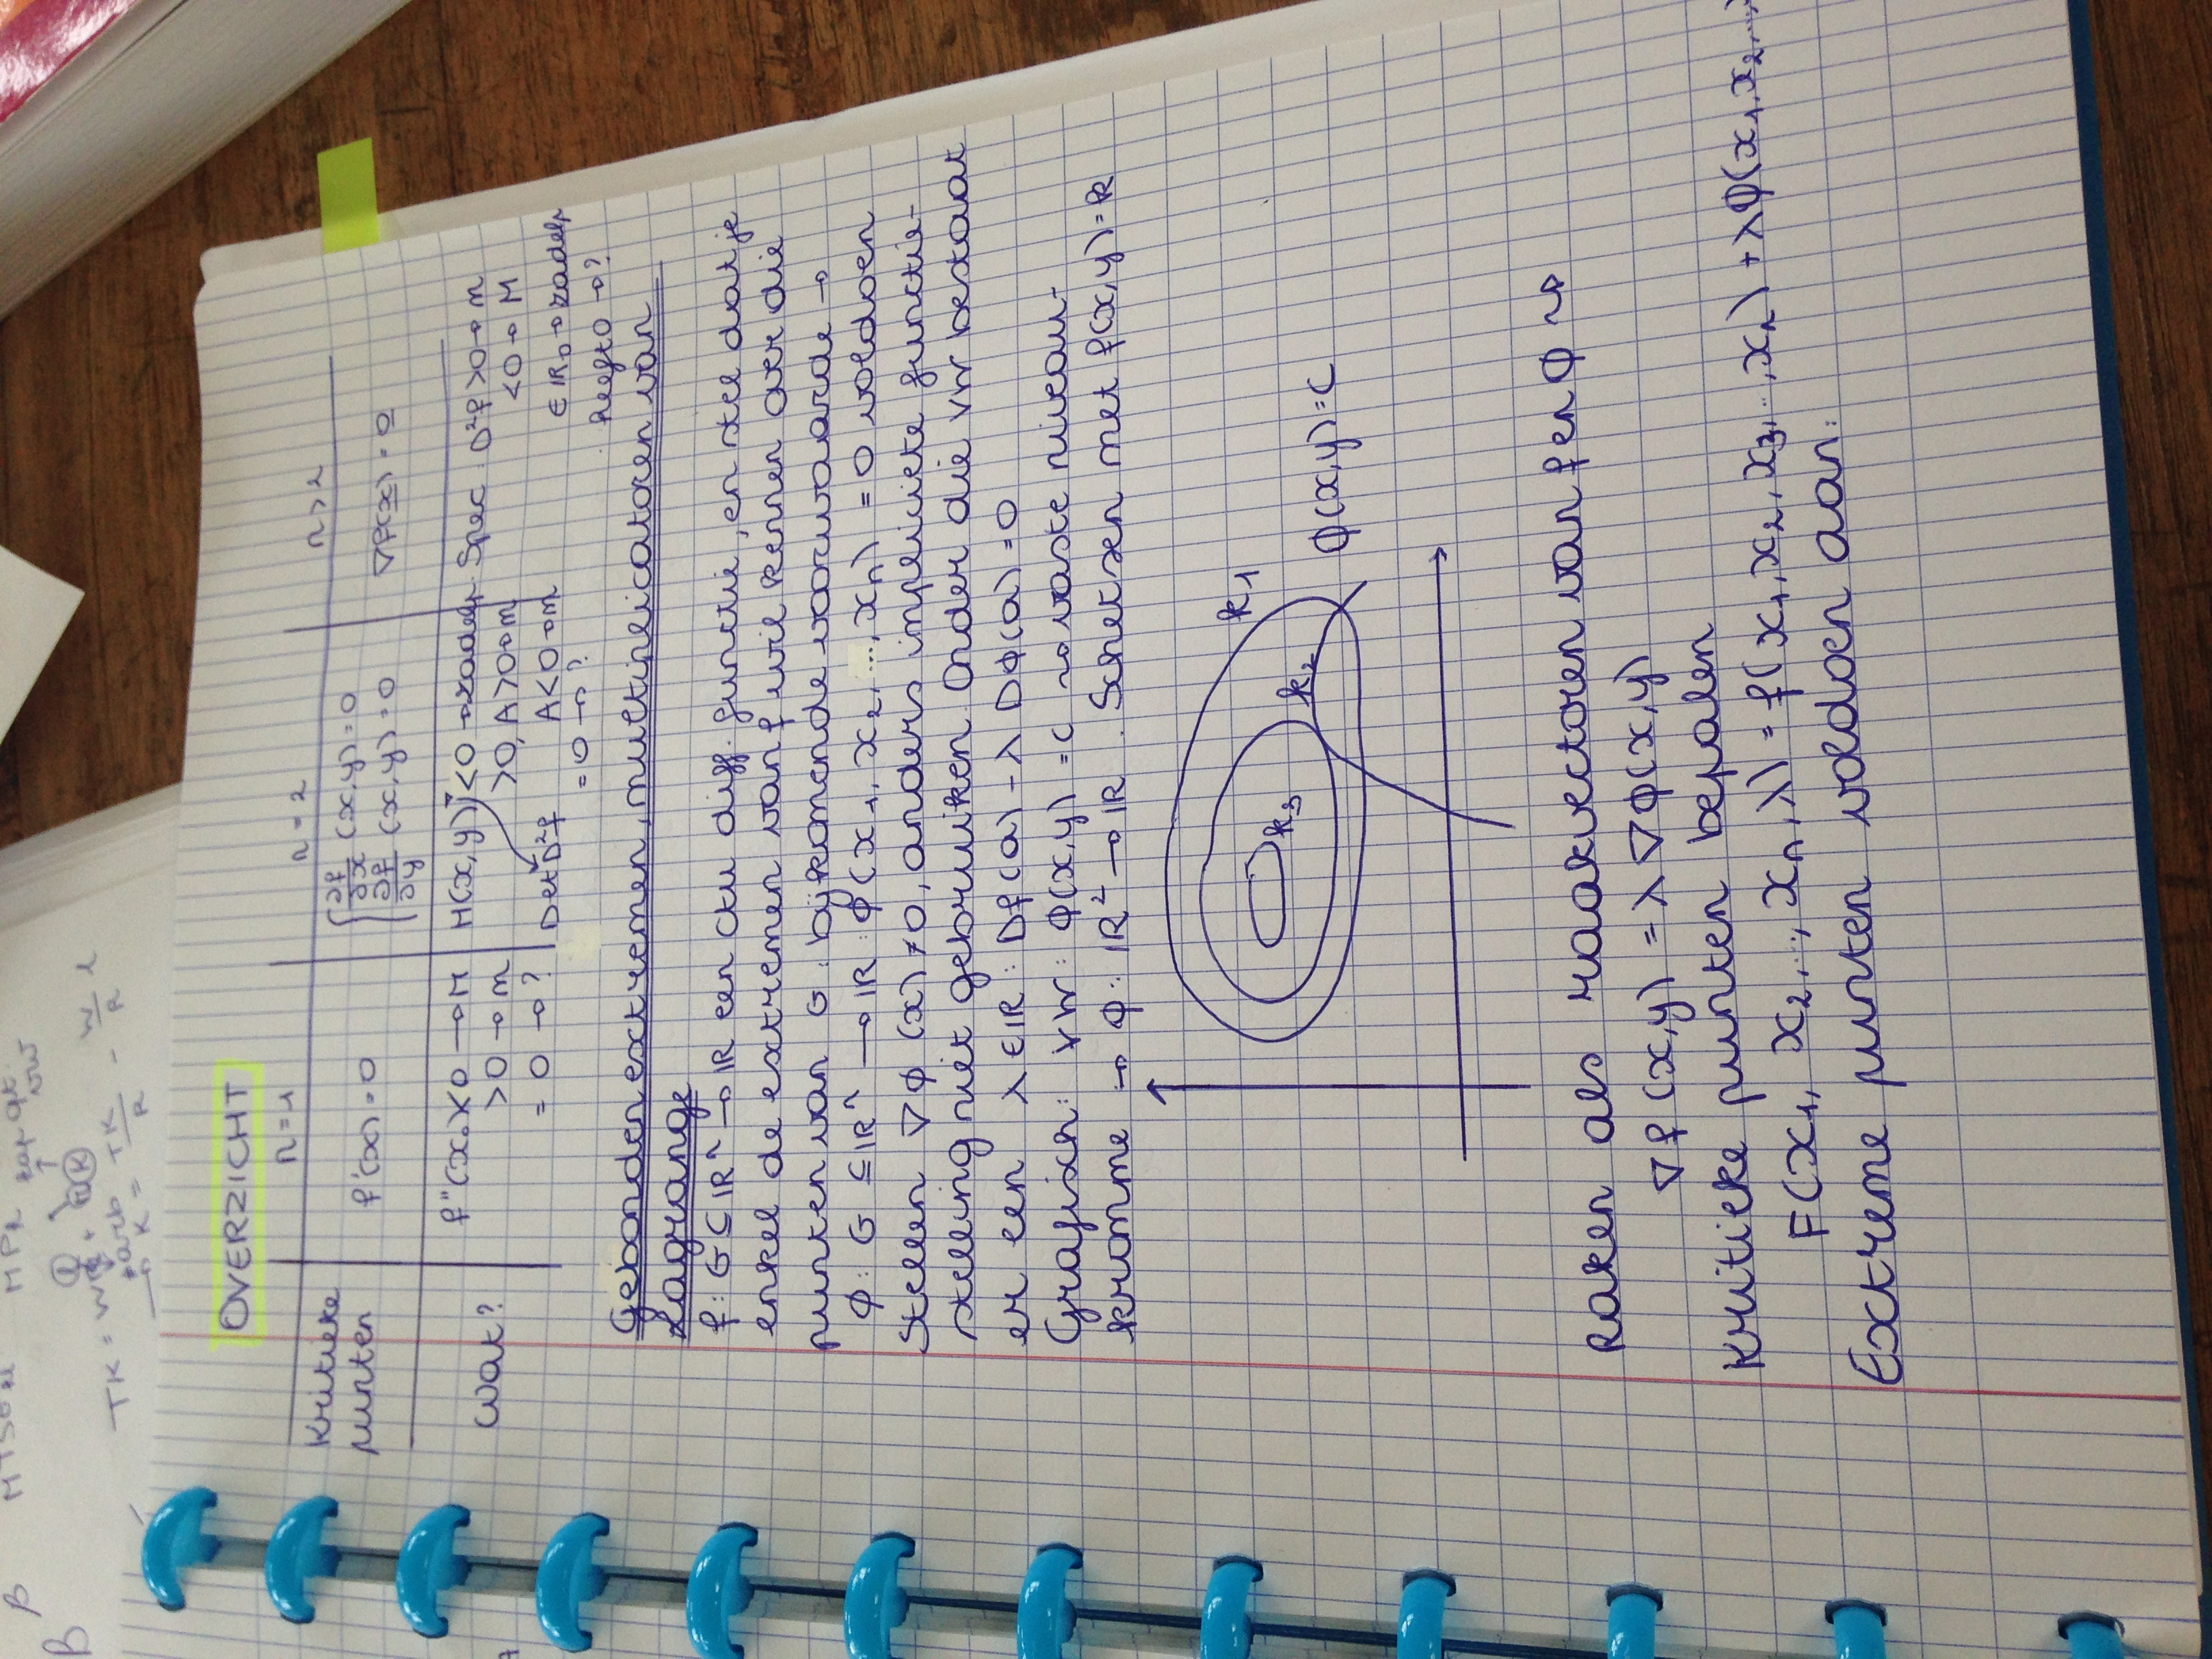 OVERZICHT
n=1 n=2 n>2
Kritieke punten f'(x)=0 { ∂f/∂x (x,y)=0 ∇f(x)=0
∂f/∂y (x,y)=0
Wat? f"(x₀)<0→M H(x,y) <0→zadelp. Spec: D²f>0→m
>0→m >0, A>0→m <0→M
=0→? Det D²f A<0→m ∈ℝ₀→zadelp
=0→? Heeft 0→?
Gebonden extremen, multiplicatoren van
Lagrange
f: G⊆ℝⁿ→ℝ een cu diff. functie, en stel dat je
enkel de extremen van f wil kennen over die
punten van G: bijkomende voorwaarde →
ϕ: G⊆ℝⁿ→ℝ: ϕ(x₁,x₂,...,xₙ)=0 voldoen
Stellen ∇ϕ(x)≠0, anders impliciete functie-
stelling niet gebruiken. Onder die vw bestaat
er een λ∈ℝ: Df(a)-λDϕ(a)=0
Grafisch: vw: ϕ(x,y)=c ⇝ vaste niveau-
kromme → ϕ: ℝ²→ℝ. Schetsen met f(x,y)=k
k₁
k₂
k₃
ϕ(x,y)=c
Raken als raakvectoren van f en ϕ ⇝
∇f(x,y)=λ∇ϕ(x,y)
Kritieke punten bepalen
F(x₁,x₂,...,xₙ,λ)=f(x₁,x₂,x₃...,xₙ)+λϕ(x₁,x₂,...,
Extreme punten voldoen aan: